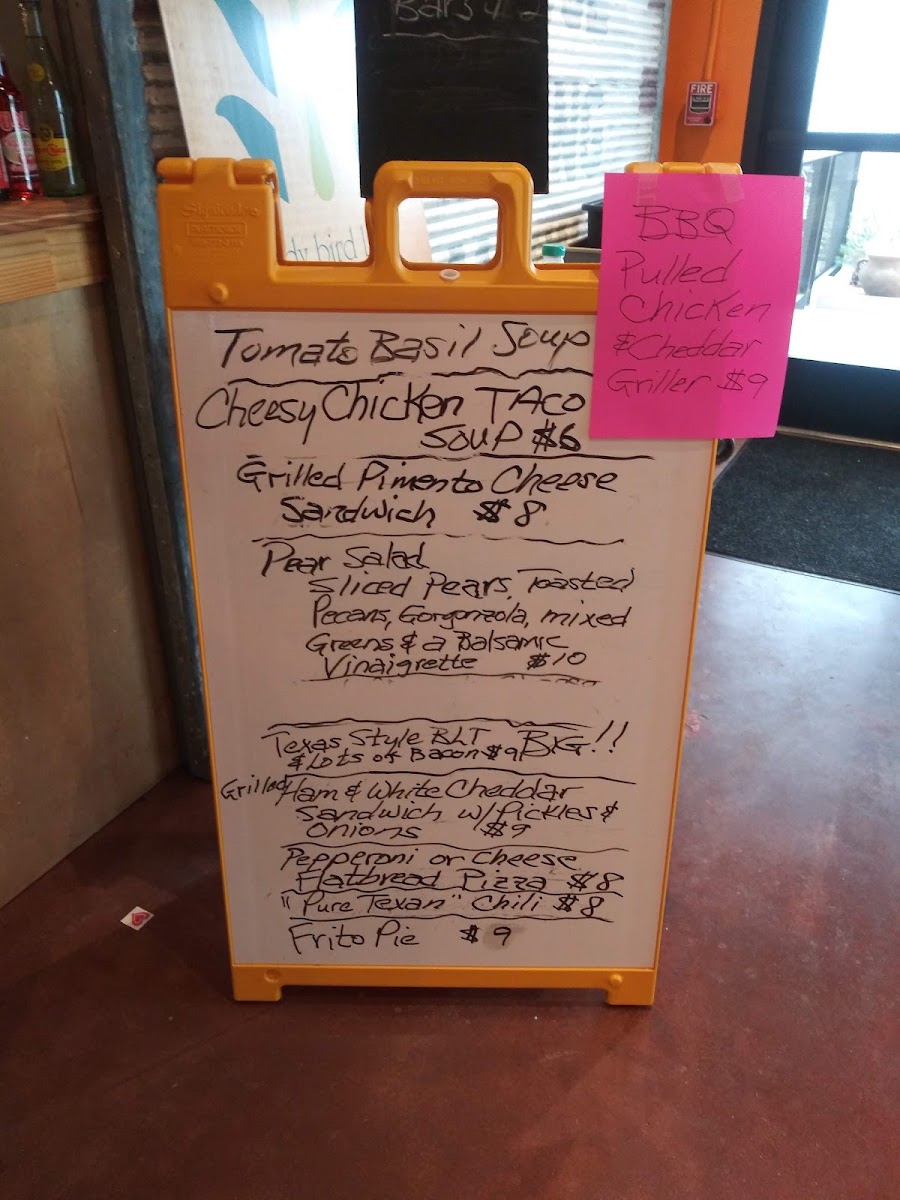 Bars
dy bird
FIRE
BBQ
Pulled
Chicken
& Cheddar
Griller $9
Tomato Basil Soup
Cheesy Chicken TAco
Soup $6
Grilled Pimento Cheese
Sandwich $8
Pear Salad
Sliced Pears, Toasted
Pecans, Gorgonzola, mixed
Greens & a Balsamic
Vinaigrette $10
Texas Style BLT
& Lots of Bacon $9 BIG!!
Grilled Ham & White Cheddar
Sandwich w/ Pickles &
Onions $9
Pepperoni or Cheese
Flatbread Pizza $8
"Pure Texan" Chili $8
Frito Pie $9